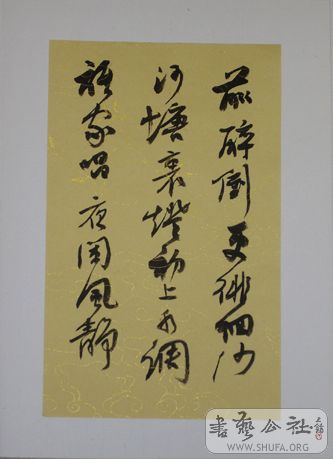 前醉倒更徘徊沙
河塘裏燈初上水調
誰家唱夜闌風靜
書藝公社
WWW.SHUFA.ORG